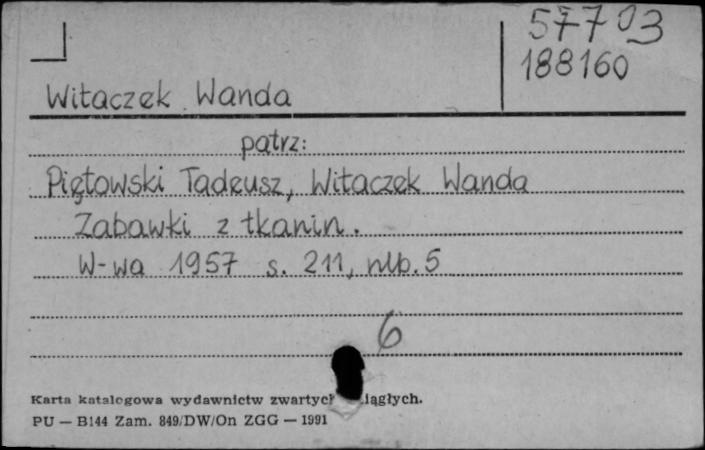 57703
188160
Witaczek Wanda
patrz:
Piętowski Tadeusz, Witaczek Wanda
Zabawki z tkanin.
W-wa 1957 s. 211, nlb. 5
6
Karta katalogowa wydawnictw zwartych iągłych.
PU — B144 Zam. 849/DW/On ZGG — 1991